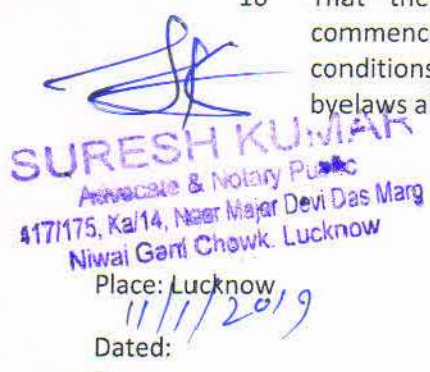 18 That the
commenc
conditions
byelaws a
SURESH KUMAR
Advocate & Notary Public
417/175, Ka/14, Near Major Devi Das Marg
Niwai Ganj Chowk. Lucknow
Place: Lucknow
11/1/2019
Dated: